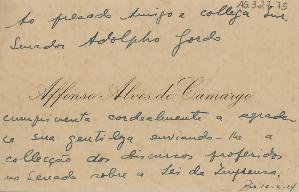 AG.327.75
Ao prezado Amigo e collega Snr.
Senador Adolpho Gordo
Affonso Alves de Camargo
cumprimenta cordealmente a agrade
ce sua gentileza enviando-lhe a
collecção dos discursos proferidos
no Senado sobre a Lei da Imprensa.
Rio